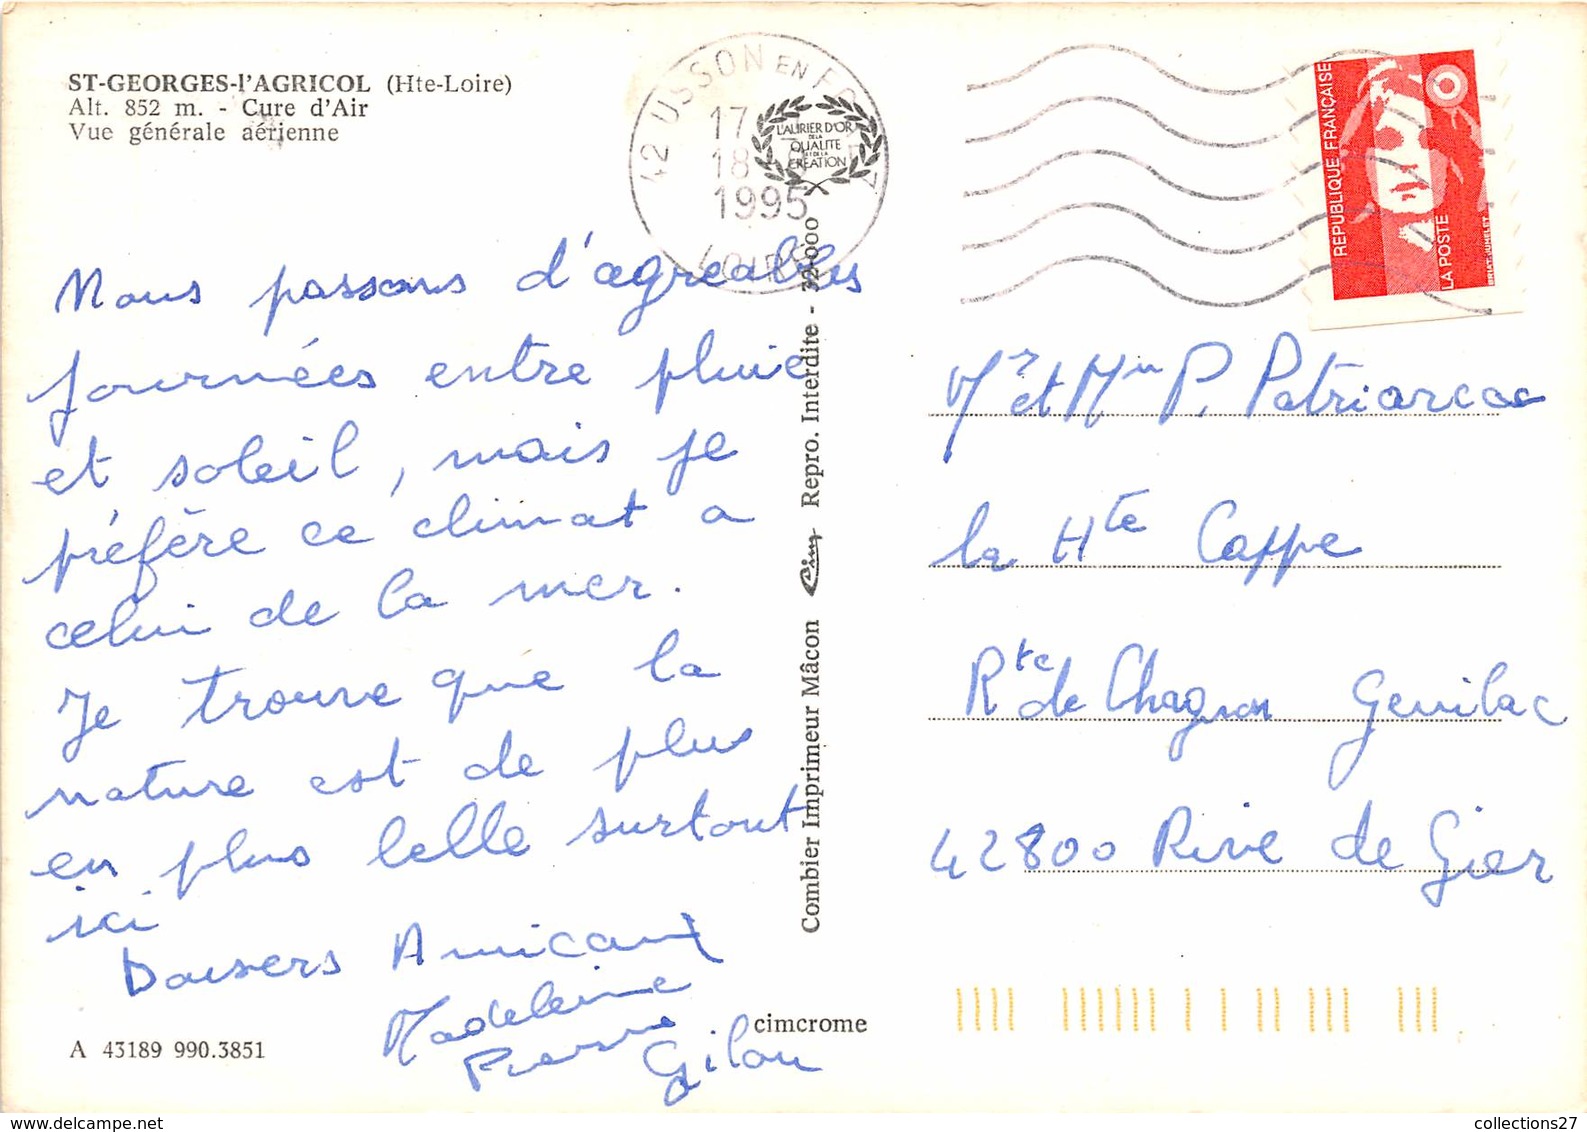 ST-GEORGES-l'AGRICOL (Hte-Loire)
Alt. 852 m. - Cure d'Air
Vue générale aérienne
42 USSON EN
17
18
1995
LOIRE
L'AURIER D'OR
DE LA
QUALITE
ET DE LA
CREATION
REPUBLIQUE FRANÇAISE
LA POSTE
BRIAT-JUMELET
Nous passons d'agréables
journées entre pluie
et soleil, mais je
préfère ce climat a
celui de la mer.
Je trouve que la
nature est de plus
en plus belle surtout
ici
Baisers Amicaux
Madeleine
Pierre
Gilou
Combier Imprimeur Mâcon Cim Repro. Interdite - 32.000
Mr et Mm P. Patriarcaa
la Hte Cappe
Rte de Chagnon Genilac
42800 Rive de Gier
A 43189 990.3851
cimcrome
collections27